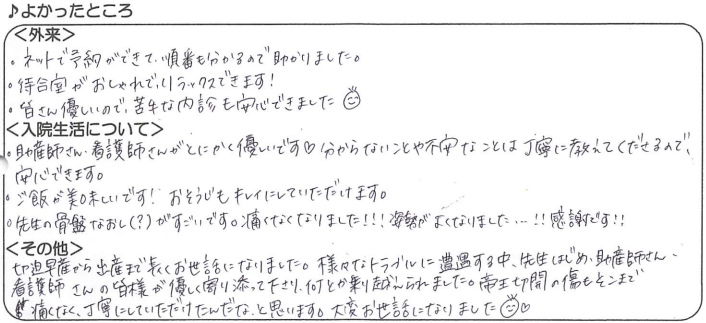 ♪よかったところ
<外来>
・ネットで予約ができて、順番も分かるので助かりました。
・待合室がおしゃれで、リラックスできます!
・皆さん優しいので、苦手な内診も安心できました
<入院生活について>
・助産師さん・看護師さんがとにかく優しいです♡ 分からないことや不安なことは丁寧に教えてくださるので、
安心できます。
・ご飯が美味しいです! おそうじもキレイにしていただけます。
・先生の骨盤なおし(?)がすごいです。痛くなくなりました!!! 姿勢がよくなりました…!! 感謝です!!
<その他>
切迫早産から出産まで長くお世話になりました。様々なトラブルに遭遇する中、先生はじめ、助産師さん・
看護師さんの皆様が優しく寄り添って下さり、何とか乗り越えられました。帝王切開の傷もそこまで
痛くなく、丁寧にしていただけたんだな、と思います。大変お世話になりました♡